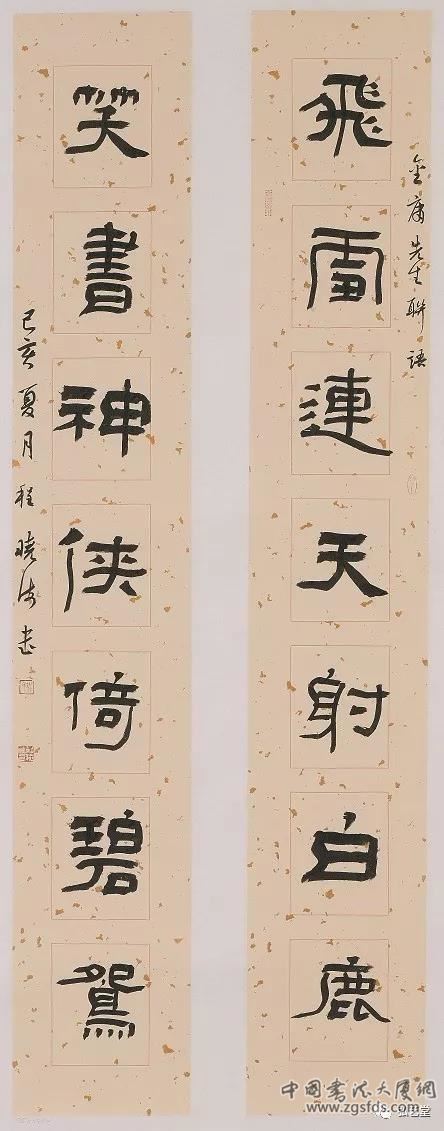 金庸先生聯語
飛雪連天射白鹿
笑書神俠倚碧鴛
己亥夏月程曉海書
中國書法大厦網
www.zgsfds.com